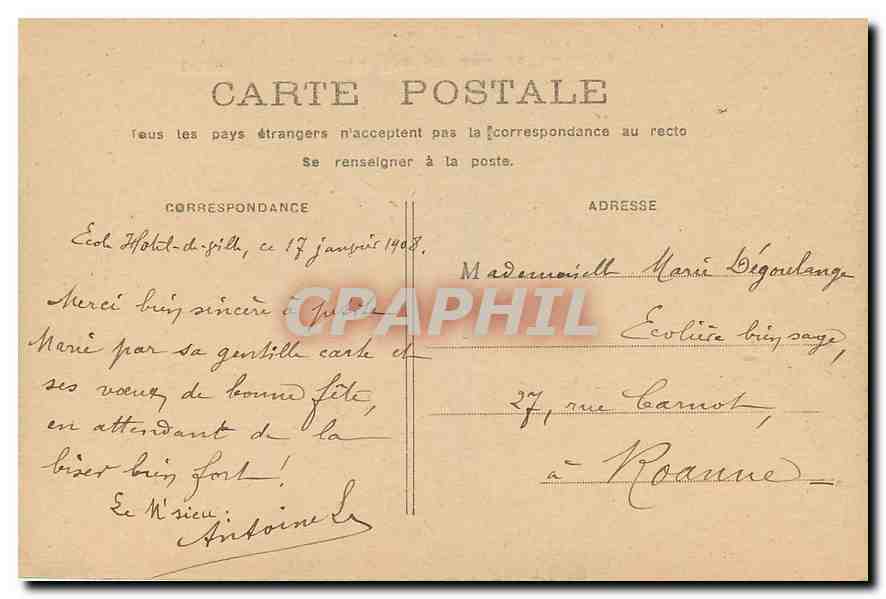 CARTE POSTALE
Tous les pays étrangers n'acceptent pas la correspondance au recto
Se renseigner à la poste.
CORRESPONDANCE
Ecole Hôtel-de-ville, ce 17 janvier 1908.
Merci bien sincère à petite
Marie par sa gentille carte et
ses vœux de bonne fête,
en attendant de la
biser bien fort !
Le M'sieu :
Antoine L
ADRESSE
Mademoiselle Marie Dégoulange
Ecolière bien sage,
27, rue Carnot,
à Roanne
CPAPHIL